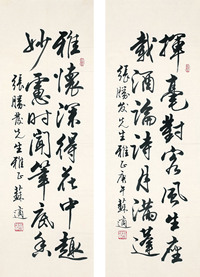 揮毫對客風生座
載酒論詩月滿蓬
張勝發先生雅正庚午蘇適
雅懷深得花中趣
妙處時聞筆底香
張勝發先生雅正蘇適